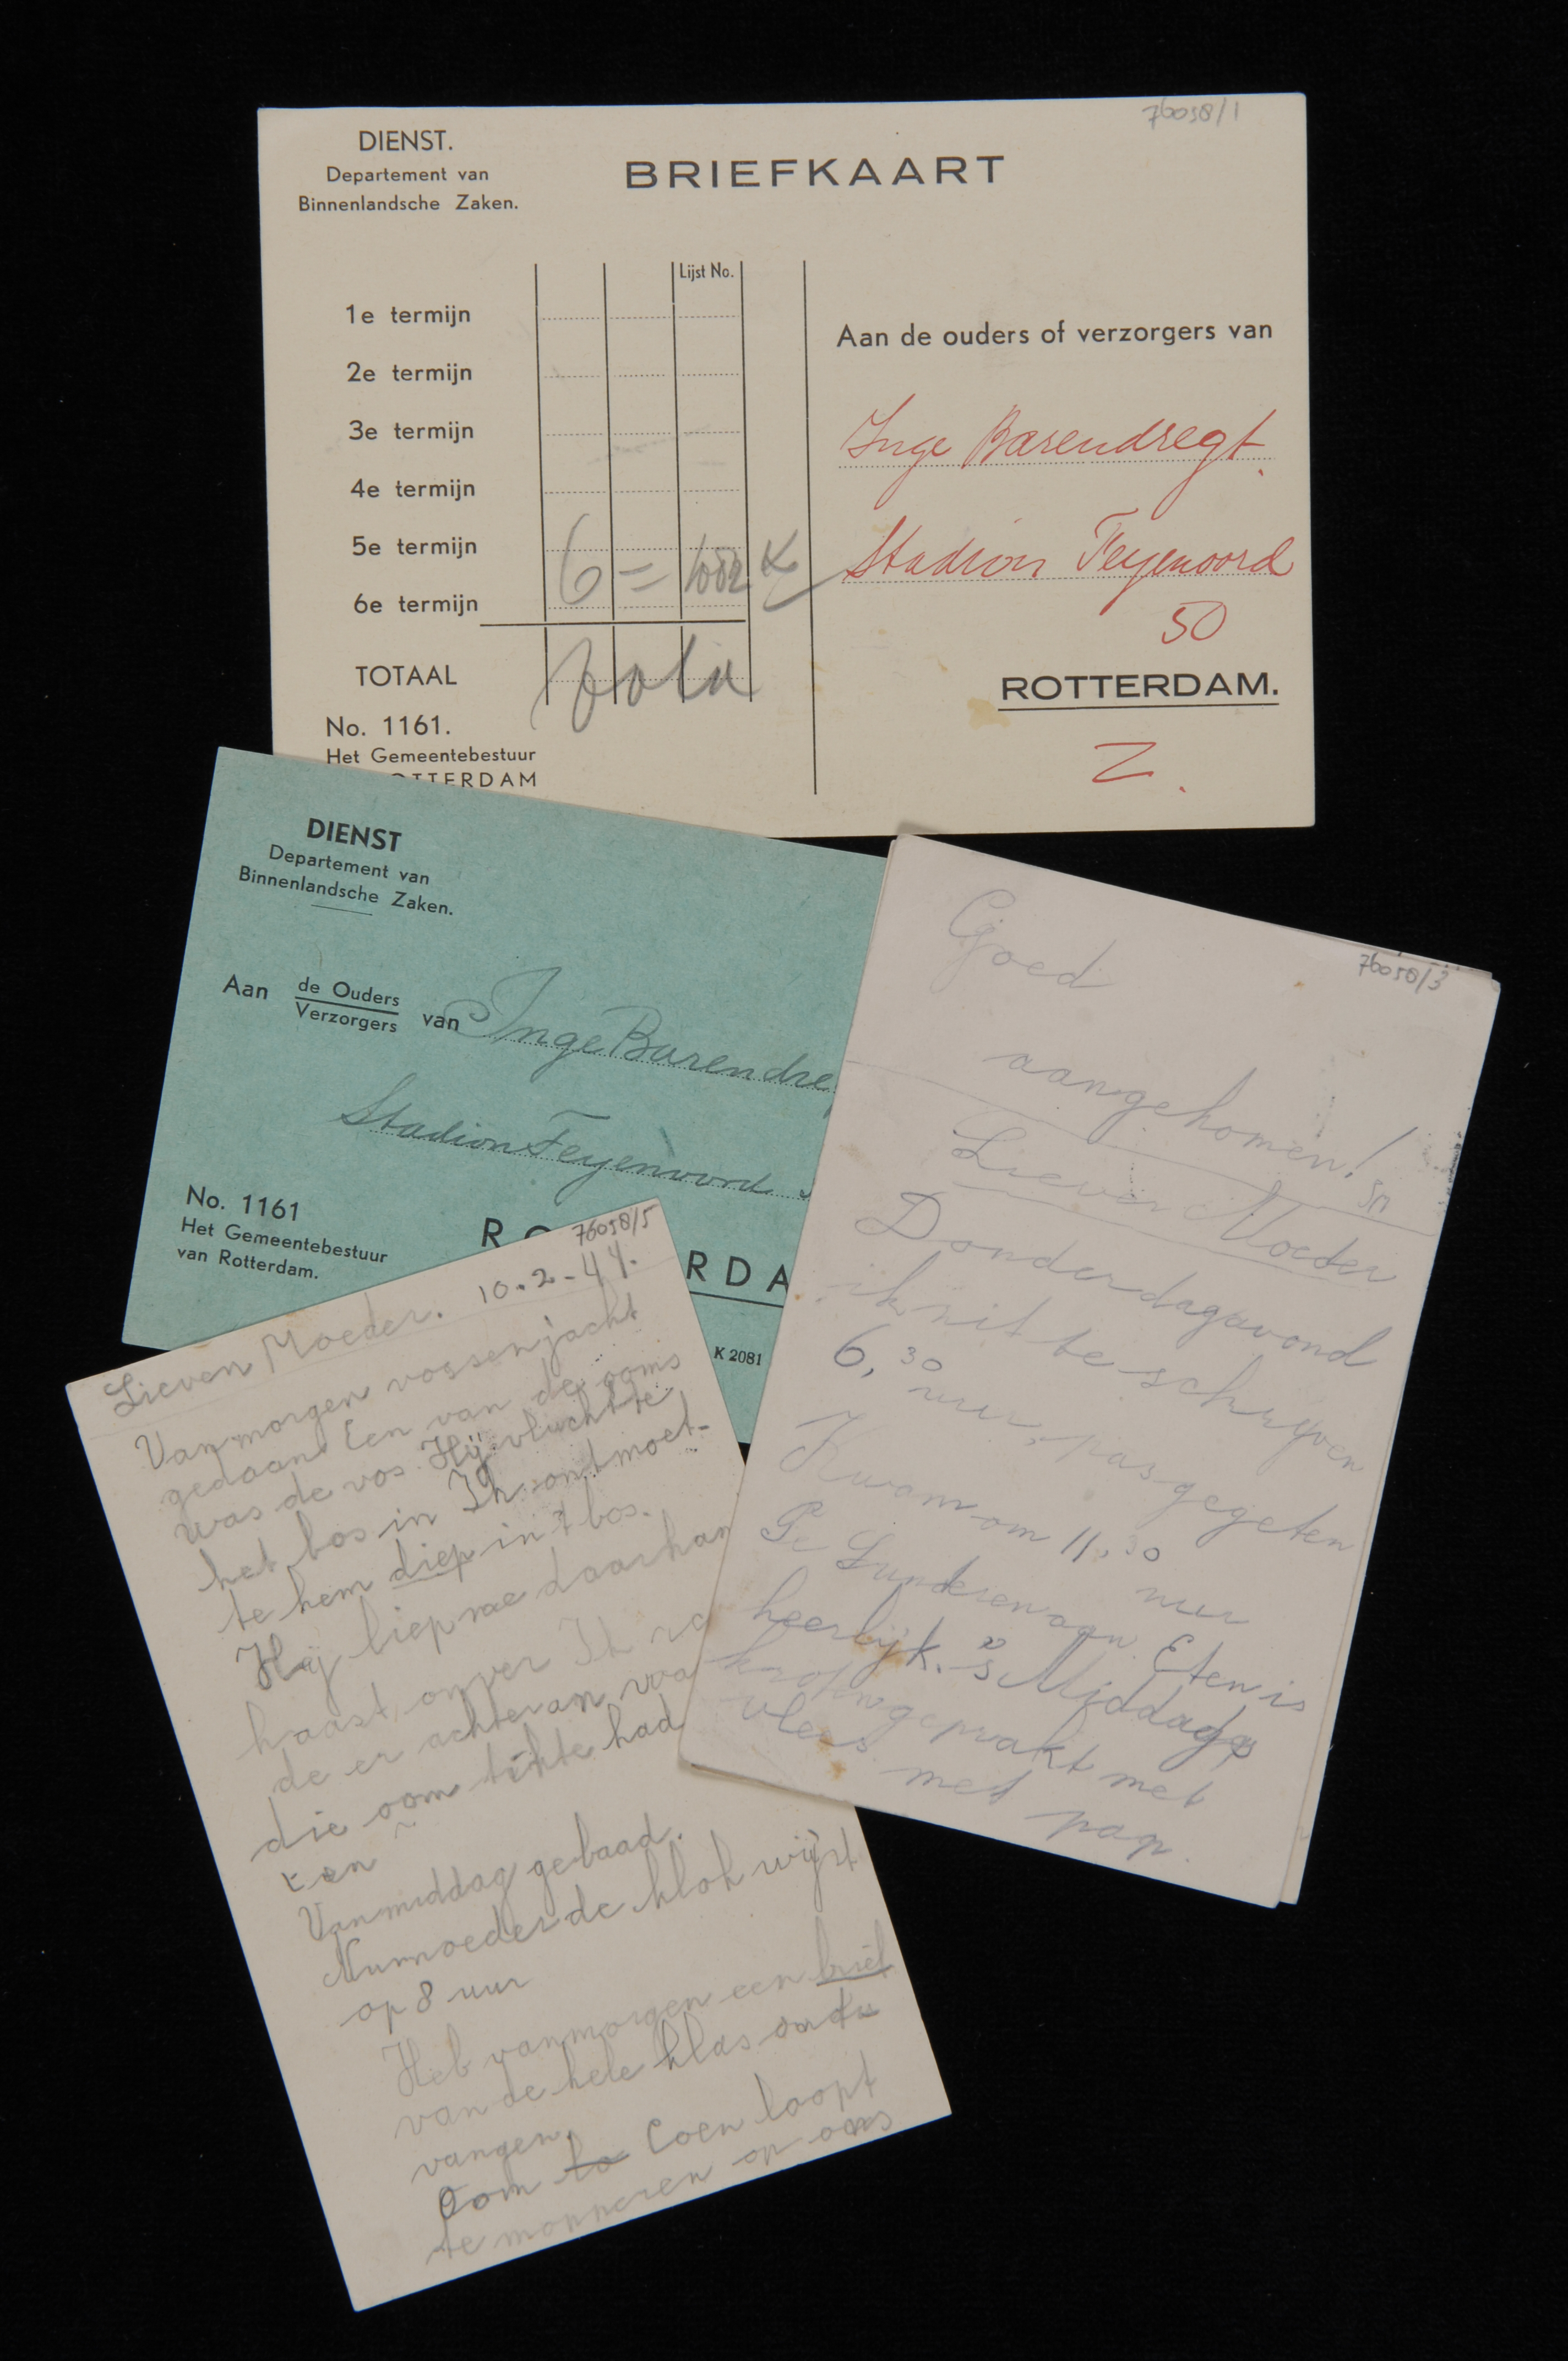 76058/1
DIENST.
Departement van
Binnenlandsche Zaken.
BRIEFKAART
Lijst No.
1e termijn
2e termijn
3e termijn
4e termijn
5e termijn
6e termijn
6 =
TOTAAL
No. 1161.
Het Gemeentebestuur
OTTERDAM
Aan de ouders of verzorgers van
Inge Barendregt.
Stadion Feyenoord
50
ROTTERDAM.
Z.
DIENST
Departement van
Binnenlandsche Zaken.
Aan de Ouders
Verzorgers van Inge Barendre
Stadion Feyenoord
No. 1161
Het Gemeentebestuur
van Rotterdam.
RO
RDA
K 2081
76058/3
Goed
aangekomen!
Lieven Moeder
Donderdagavond
ik zit te schrijven
6,30 uur, pas gegeten
Kwam om 11.30 uur
Lunteren aan. Eten is
heerlijk. 's Middags
geprakt met
vlees met pap.
76058/5
10.2-44.
Lieven Moeder.
Vanmorgen vossenjacht
gedaan Een van de ooms
was de vos. Hij vluchtte
het bos in Ik ontmoet-
te hem diep in 't bos.
Hij liep me daar han
haast onver Ik ra
de er achteran wa
die oom tikte had
Vanmiddag gebaad.
Nu moeder de klok wijst
op 8 uur
Heb vanmorgen een brief
van de hele klas ont
vangen.
Oom to Coen loopt
te mopperen op ons